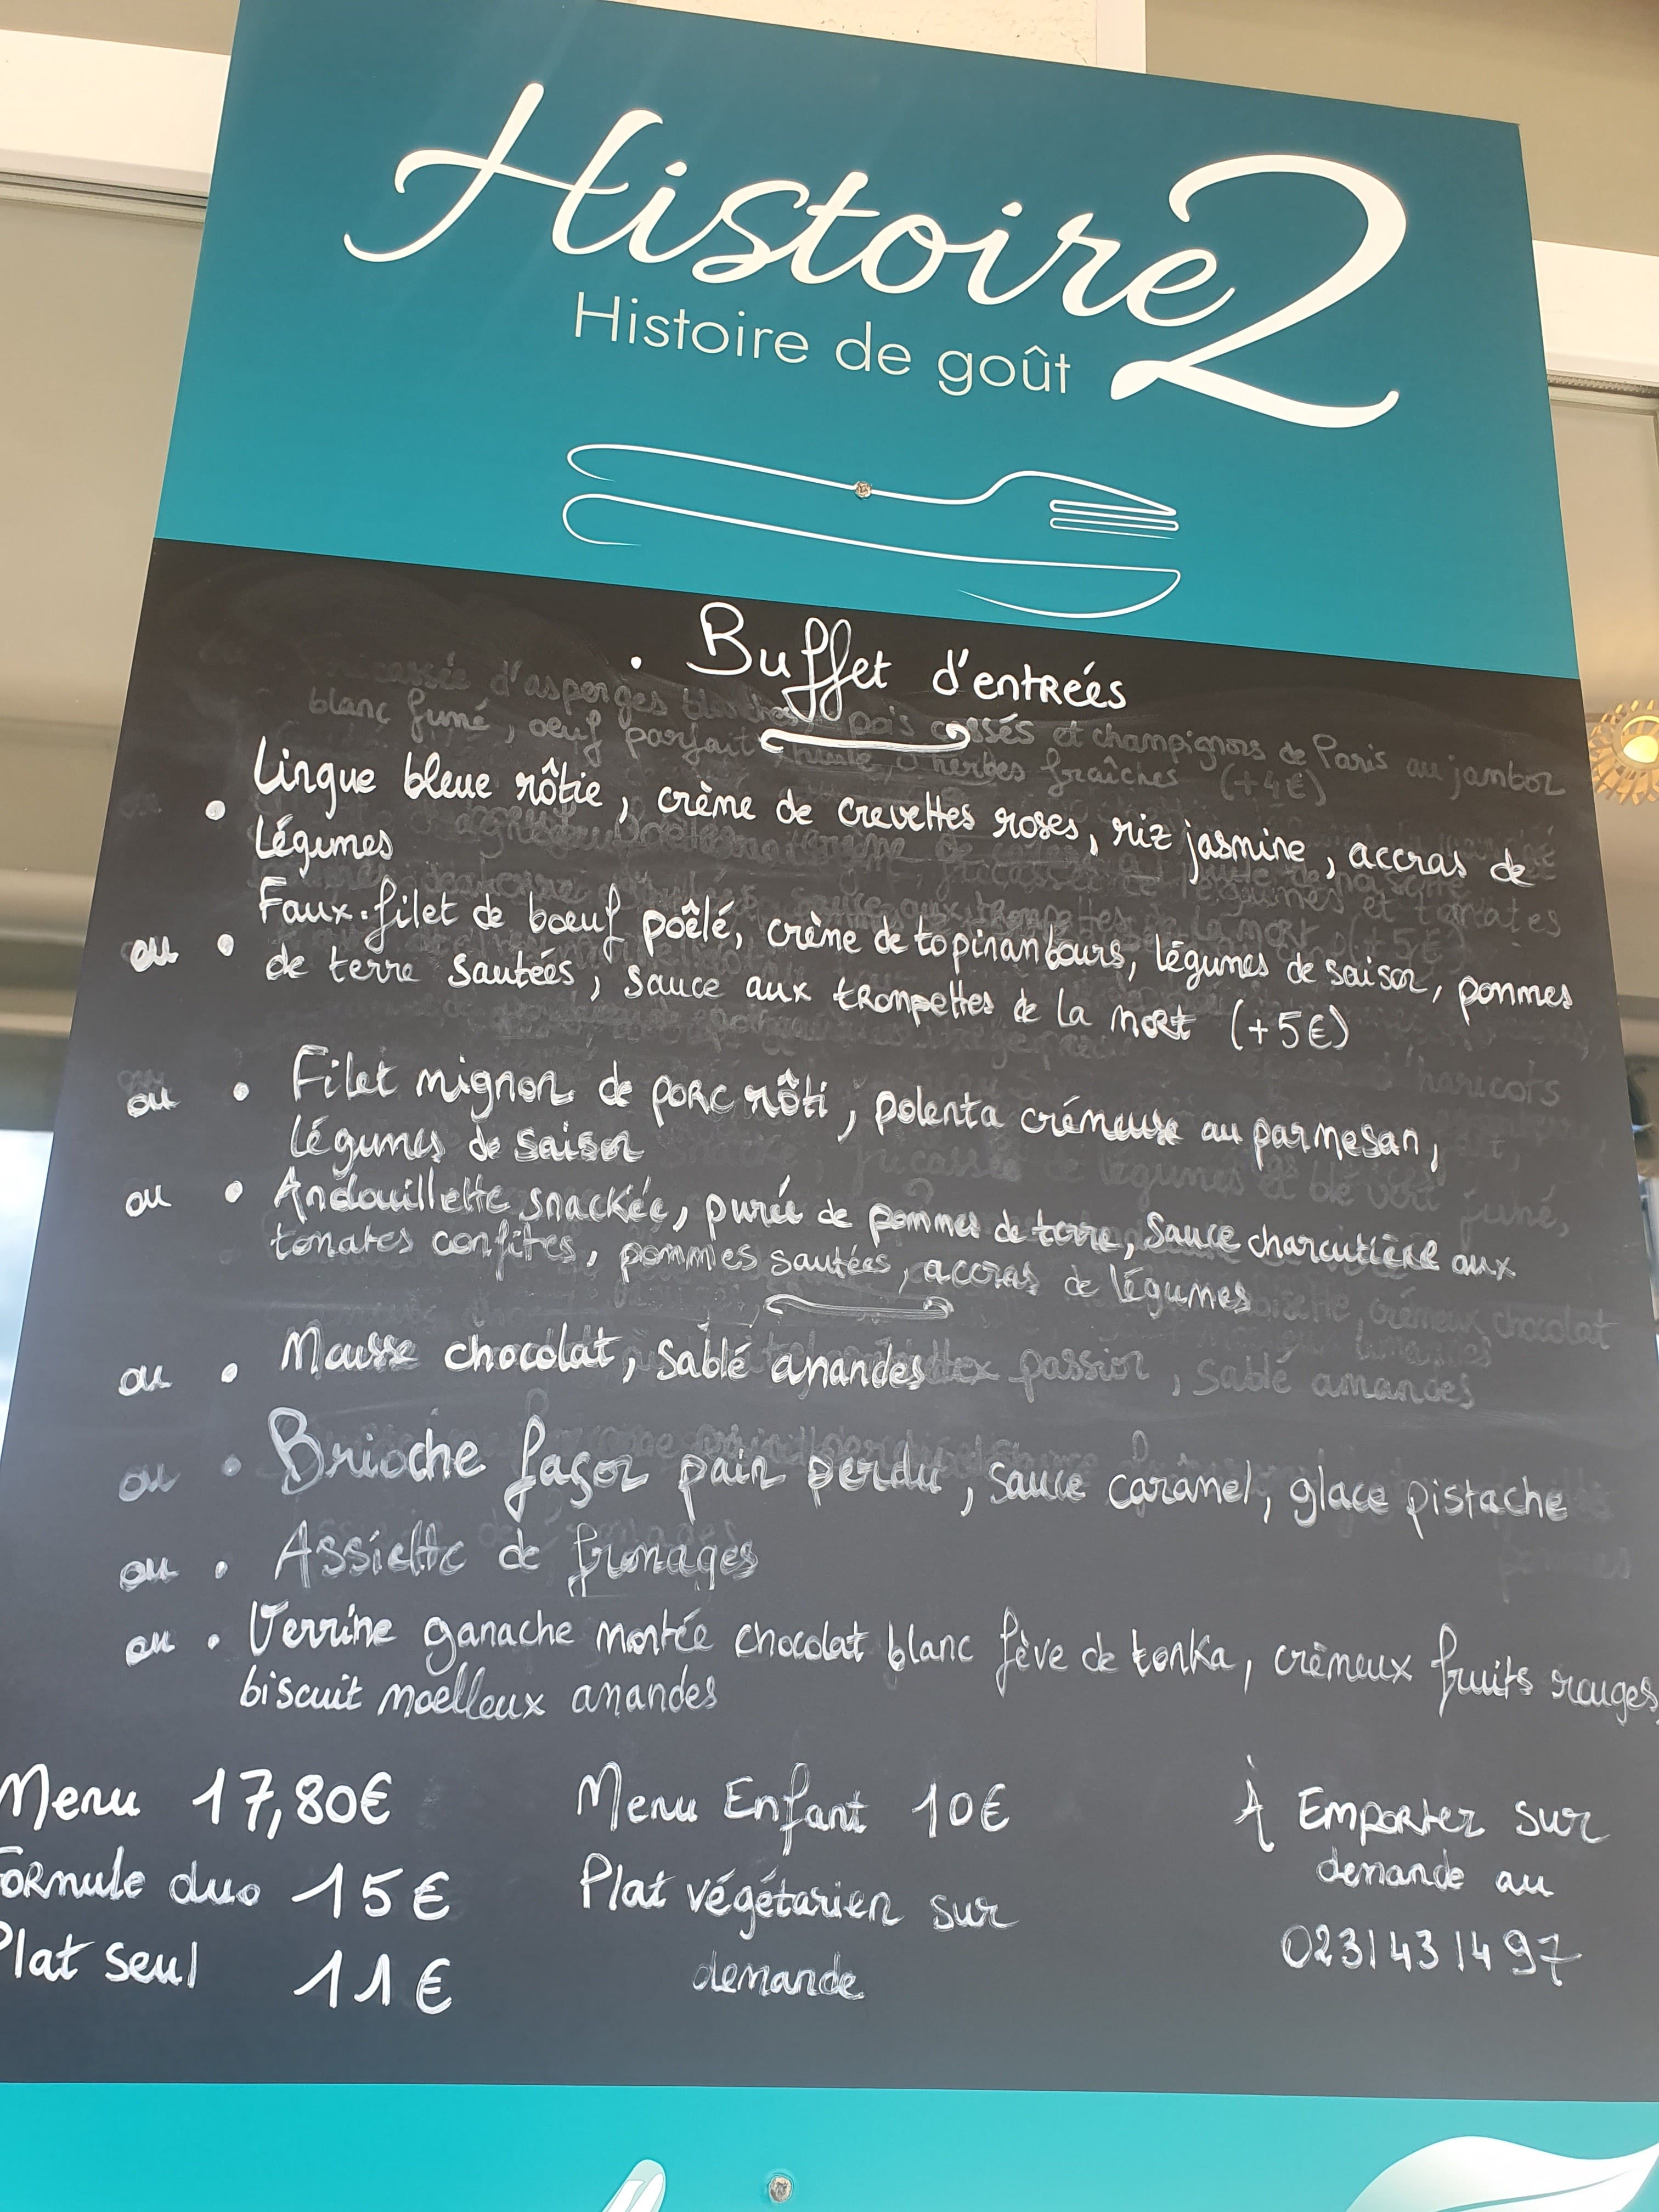 Histoire 2
Histoire de goût
• Buffet d'entrées
• Lingue bleue rôtie, crème de crevettes roses, riz jasmine, accras de
légumes
ou • Faux-filet de boeuf poêlé, crème de topinambours, légumes de saison, pommes
de terre sautées, sauce aux trompettes de la mort (+5€)
ou • Filet mignon de porc rôti, polenta crémeuse au parmesan,
légumes de saison
ou • Andouillette snackée, purée de pommes de terre, sauce charcutière aux
tomates confites, pommes sautées, accras de légumes
ou • Mousse chocolat, sablé amandes
ou • Brioche façon pain perdu, sauce caramel, glace pistache
ou • Assiette de fromages
ou • Verrine ganache montée chocolat blanc fève de tonka, crèmeux fruits rouges,
biscuit moelleux amandes
Menu 17,80€
Formule duo 15€
Plat seul 11€
Menu Enfant 10€
Plat végétarien sur
demande
À Emporter sur
demande au
0231431497